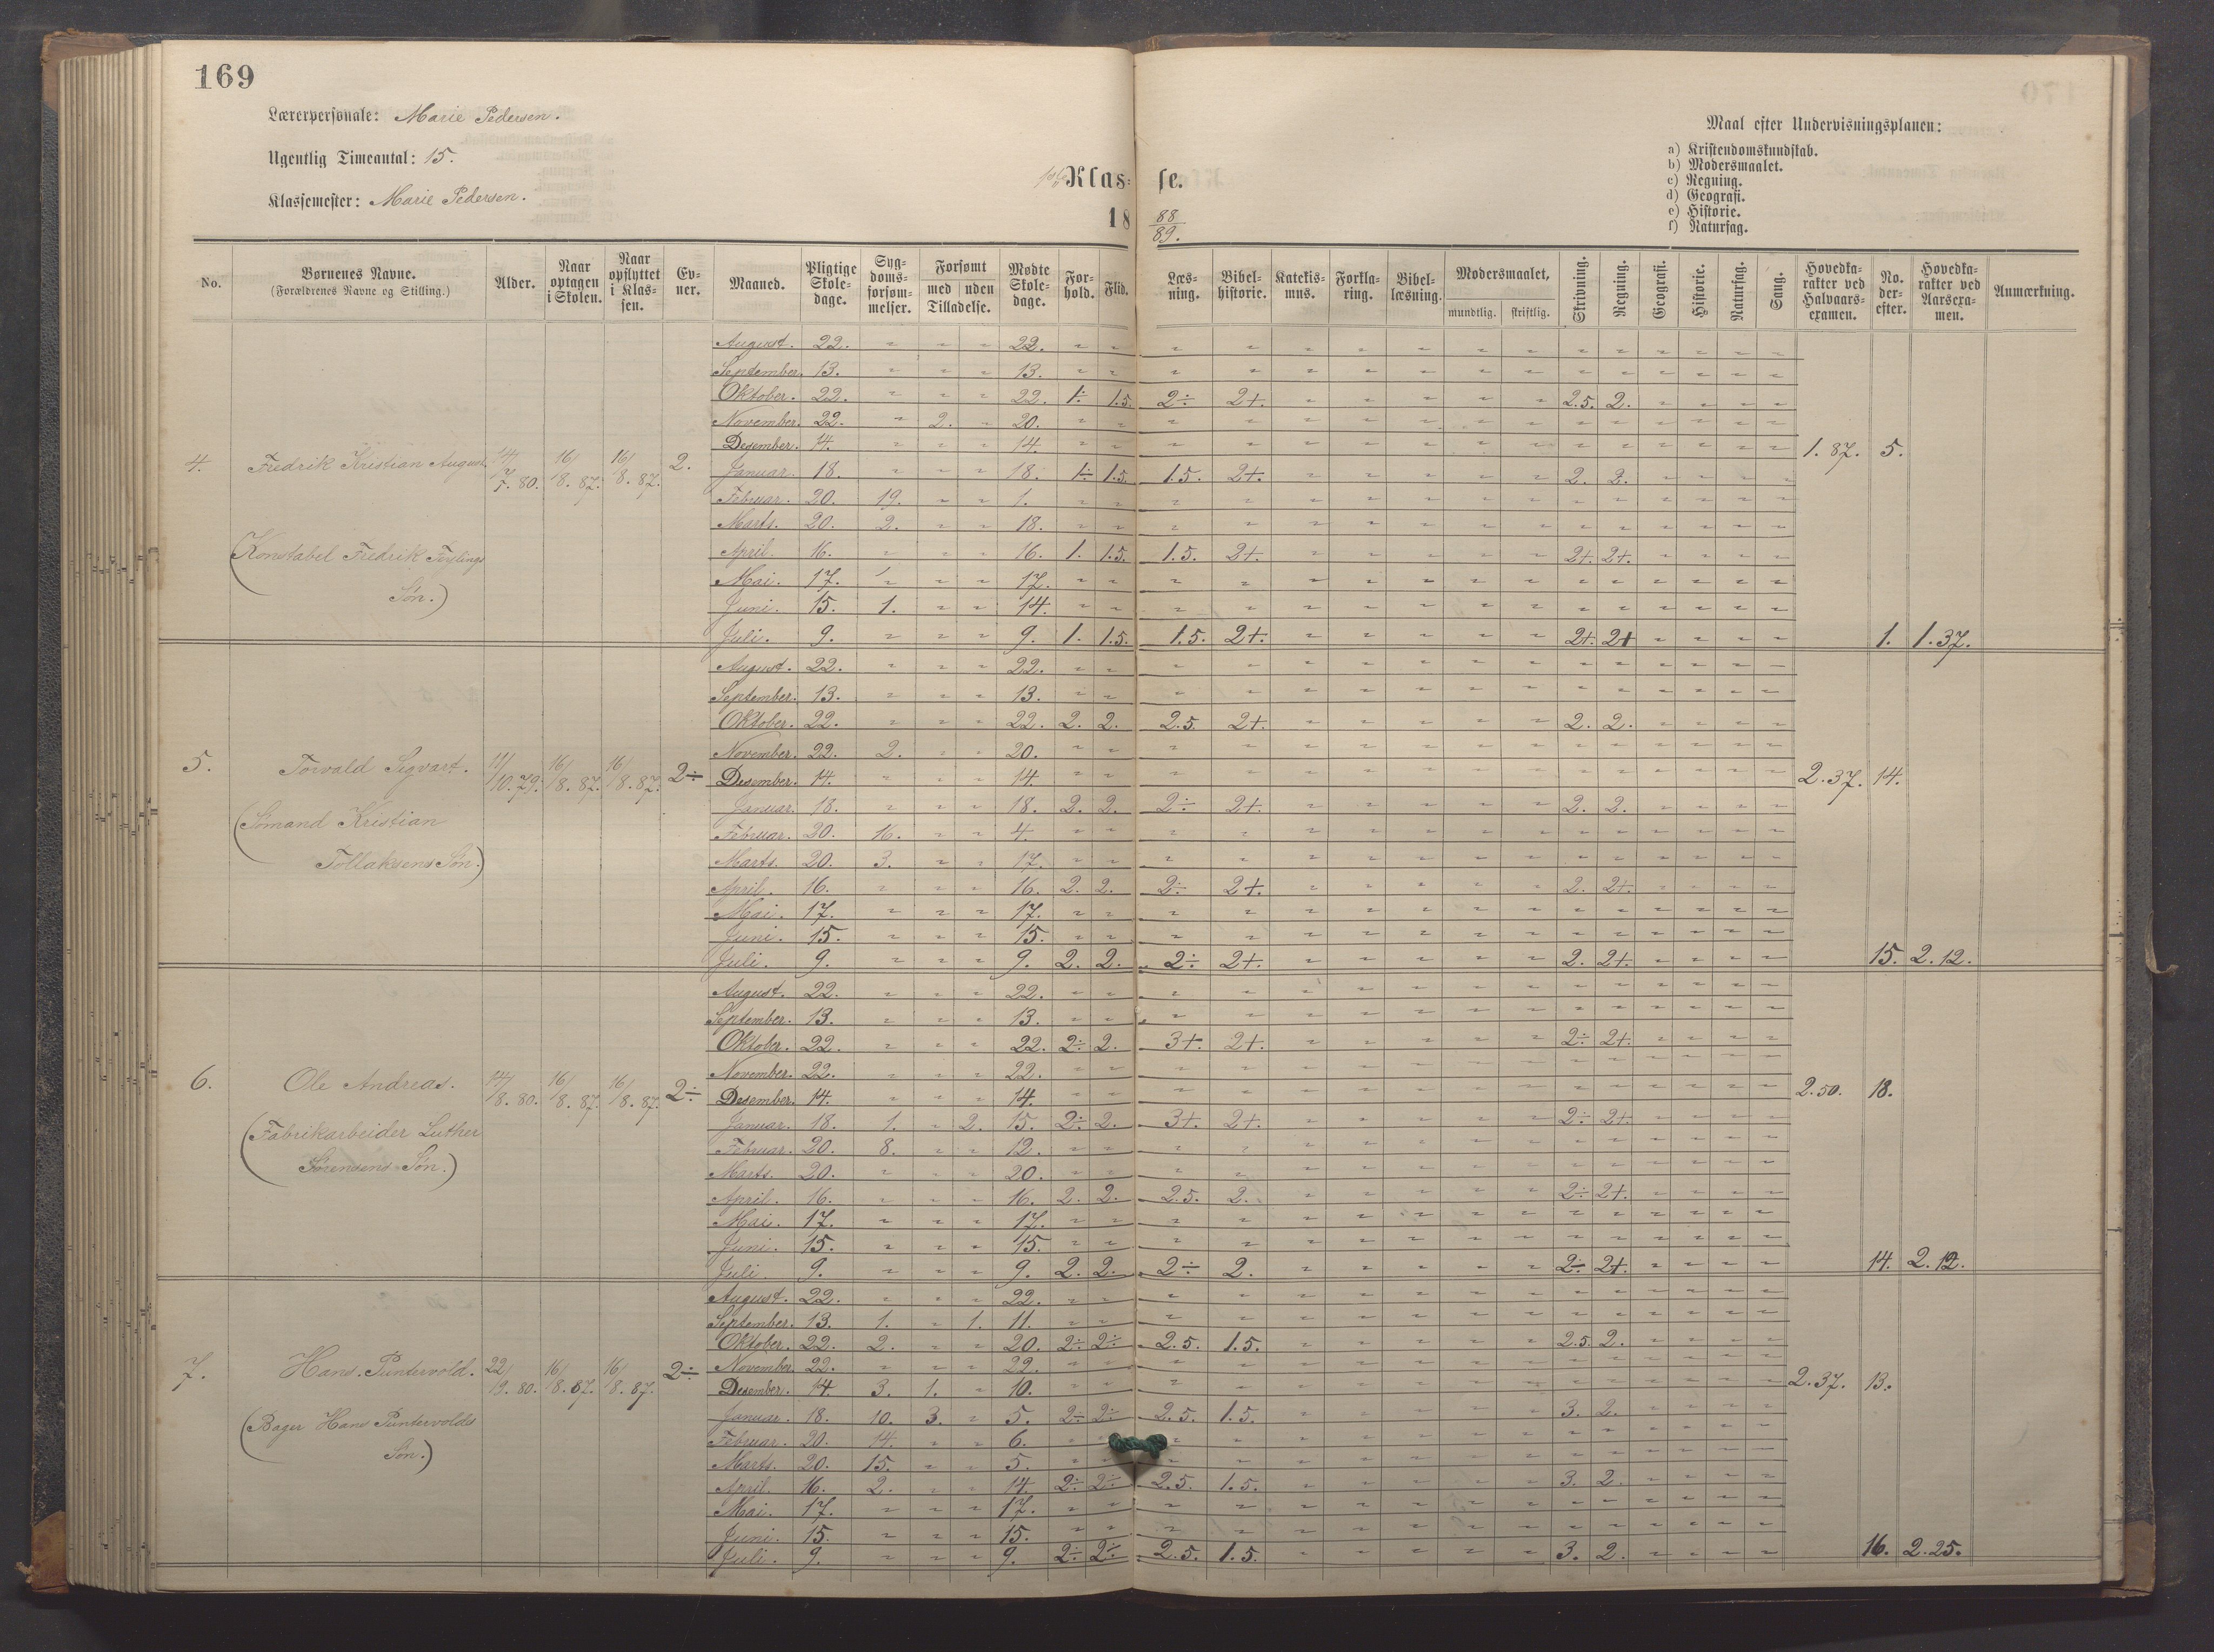 169
170
Lærerpersonale: Marie Pedersen.
Maal efter Undervisningsplanen:
Ugentlig Timeantal: 15.
a) Kristendomskundskab.
b) Modersmaalet.
Klas- se.
c) Regning.
Klassemester: Marie Pedersen.
d) Geografi.
18 88/89.
e) Historie.
f) Naturfag.
No. Børnenes Navne. (Forældrenes Navne og Stilling.) Alder. Naar optagen i Skolen. Naar opflyttet i Klassen. Evner. Maaned. Pligtige Skoledage. Sygdomsforsømmelser. Forsømt med uden Tilladelse. Mødte Skoledage. Forhold. Flid. Læsning. Bibelhistorie. Katekismus. Forklaring. Bibellæsning. Modersmaalet, mundtlig. skriftlig. Skrivning. Regning. Geografi. Historie. Naturfag. Sang. Hovedkarakter ved Halvaarsexamen. No. derefter. Hovedkarakter ved Aarsexamen. Anmærkning.
August. 22. " " " 22. " " " " " " " " " " " " " " "
September. 13. " " " 13. " " " " " " " " " " " " " " "
Oktober. 22. " " " 22. 1÷ 1.5. 2÷ 2+. " " " " " 2.5. 2. " " " "
November. 22. " 2. " 20. " " " " " " " " " " " " " " "
Desember. 14. " " " 14. " " " " " " " " " " " " " " " 1.87. 5.
4. Fredrik Kristian August. 14/7.80. 16/8.87. 16/8.87. 2. Januar. 18. " " " 18. 1÷ 1.5. 1.5. 2+. " " " " " 2. 2. " " " "
Februar. 20. 19. " " 1. " " " " " " " " " " " " " " "
Marts. 20. 2. " " 18. " " " " " " " " " " " " " " "
(Konstabel Fredrik Teylings April. 16. " " " 16. 1. 1.5. 1.5. 2+. " " " " " 2+. 2+. " " " "
Søn.) Mai. 17. " " " 17. " " " " " " " " " " " " " " "
Juni. 15. 1. " " 14. " " " " " " " " " " " " " " "
Juli. 9. " " " 9. 1. 1.5. 1.5. 2+. " " " " " 2+. 2+ " " " " 1. 1.37.
August. 22. " " " 22. " " " " " " " " " " " " " " "
September. 13. " " " 13. " " " " " " " " " " " " " " "
Oktober. 22. " " " 22. 2. 2. 2.5. 2+. " " " " " 2. 2. " " " "
November. 22. 2. " " 20. " " " " " " " " " " " " " " "
5. Torvald Sigvart. 11/10.79. 16/8.87. 16/8.87. 2÷ Desember. 14. " " " 14. " " " " " " " " " " " " " " " 2.37. 14.
Januar. 18. " " " 18. 2. 2. 2÷ 2+. " " " " " 2. 2. " " " "
(Sømand Kristian Februar. 20. 16. " " 4. " " " " " " " " " " " " " " "
Tollaksens Søn.) Marts. 20. 3. " " 17. " " " " " " " " " " " " " " "
April. 16. " " " 16. 2. 2. 2÷ 2+. " " " " " 2. 2+. " " " "
Mai. 17. " " " 17. " " " " " " " " " " " " " " "
Juni. 15. " " " 15. " " " " " " " " " " " " " " "
Juli. 9. " " " 9. 2. 2. 2÷ 2+. " " " " " 2. 2+. " " " " 15. 2.12.
August. 22. " " " 22. " " " " " " " " " " " " " " "
September. 13. " " " 13. " " " " " " " " " " " " " " "
Oktober. 22. " " " 22. 2÷ 2. 3+. 2+. " " " " " 2÷ 2+. " " " "
November. 22. " " " 22. " " " " " " " " " " " " " " "
6. Ole Andreas. 14/8.80. 16/8.87. 16/8.87. 2÷ Desember. 14. " " " 14. " " " " " " " " " " " " " " " 2.50. 18.
(Fabrikarbeider Luther Januar. 18. 1. " 2. 15. 2÷ 2. 3+. 2+. " " " " " 2÷ 2+. " " " "
Sørensens Søn.) Februar. 20. 8. " " 12. " " " " " " " " " " " " " " "
Marts. 20. " " " 20. " " " " " " " " " " " " " " "
April. 16. " " " 16. 2. 2. 2.5. 2. " " " " " 2÷ 2+. " " " "
Mai. 17. " " " 17. " " " " " " " " " " " " " " "
Juni. 15. " " " 15. " " " " " " " " " " " " " " "
Juli. 9. " " " 9. 2. 2. 2÷ 2. " " " " " 2÷ 2+. " " " " 14. 2.12.
August. 22. " " " 22. " " " " " " " " " " " " " " "
September. 13. 1. " 1. 11. " " " " " " " " " " " " " " "
Oktober. 22. 2. " " 20. 2÷ 2÷ 2.5. 1.5. " " " " " 2.5. 2. " " " "
7. Hans Puntervold. 22/9.80. 16/8.87. 16/8.87. 2÷ November. 22. " " " 22. " " " " " " " " " " " " " " "
Desember. 14. 3. 1. " 10. " " " " " " " " " " " " " " " 2.37. 13.
(Bager Hans Puntervolds Januar. 18. 10. 3. " 5. 2÷ 2÷ 2.5. 1.5. " " " " " 3. 2. " " " "
Søn.) Februar. 20. 14. " " 6. " " " " " " " " " " " " " "
Marts. 20. 15. " " 5. " " " " " " " " " " " " " "
April. 16. 2. " " 14. 2÷ 2÷ 2.5. 1.5. " " " " " 3. 2. " " " "
Mai. 17. " " " 17. " " " " " " " " " " " " " " "
Juni. 15. " " " 15. " " " " " " " " " " " " " " "
Juli. 9. " " " 9. 2÷ 2÷ 2.5. 1.5. " " " " " 3. 2. " " " " 16. 2.25.